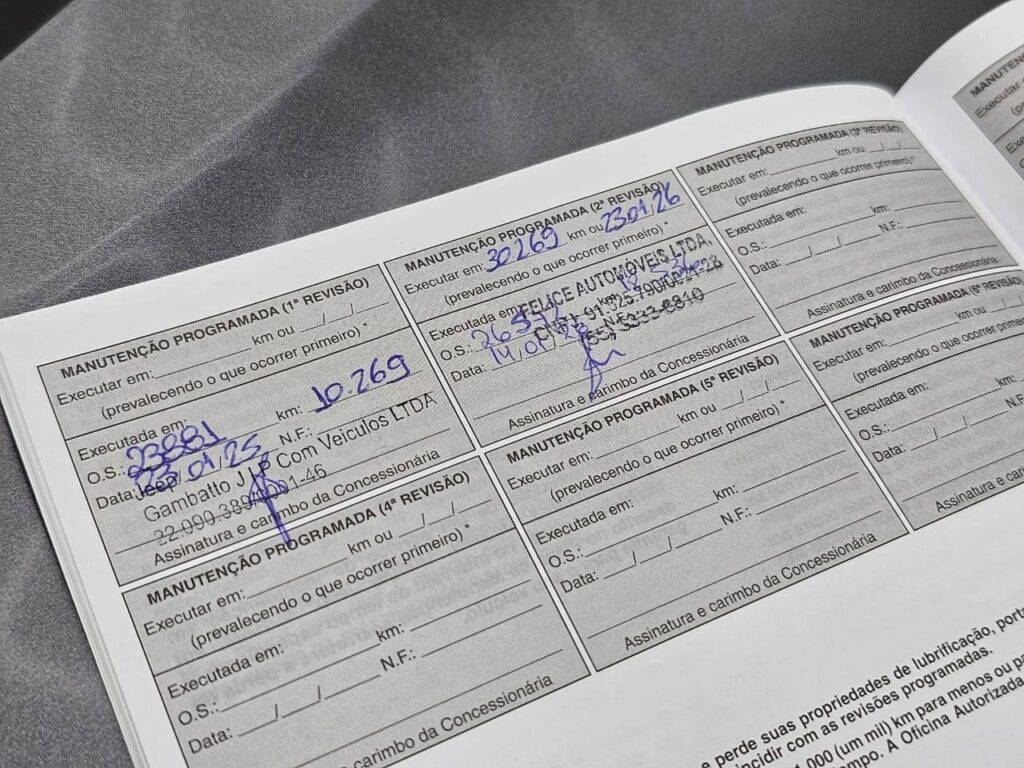 MANUTENÇÃO PROGRAMADA (1ª REVISÃO)
Executar em: km ou __/__/__
(prevalecendo o que ocorrer primeiro)*
Executada em: km: 10.269
O.S.: 23881 N.F.:
Data: 23/01/25
Jeep
Gambatto J P Com Veiculos LTDA
Assinatura e carimbo da Concessionária
MANUTENÇÃO PROGRAMADA (2ª REVISÃO)
Executar em: 30269 km ou 23/01/26
(prevalecendo o que ocorrer primeiro)*
Executada em: km:
FELICE AUTOMÓVEIS LTDA.
O.S.: N.F.:
Data: 14/01/
(55) 3333-6810
Assinatura e carimbo da Concessionária
MANUTENÇÃO PROGRAMADA (3ª REVISÃO)
Executar em: km ou __/__/__
(prevalecendo o que ocorrer primeiro)*
Executada em: km:
O.S.: N.F.:
Data: __/__/__
Assinatura e carimbo da Concessionária
MANUTENÇÃO PROGRAMADA (4ª REVISÃO)
Executar em: km ou __/__/__
(prevalecendo o que ocorrer primeiro)*
Executada em: km:
O.S.: N.F.:
Data: __/__/__
carimbo da Concessionária
MANUTENÇÃO PROGRAMADA (5ª REVISÃO)
Executar em: km ou __/__/__
(prevalecendo o que ocorrer primeiro)*
Executada em: km:
O.S.: N.F.:
Data: __/__/__
Assinatura e carimbo da Concessionária
MANUTENÇÃO PROGRAMADA (6ª REVISÃO)
Executar em:
(prevalecendo o que ocorrer
Executada em:
O.S.:
Data: __/__/__
Assinatura e carimbo
e perde suas propriedades de lubrificação,
com as revisões programadas.
1.000 (um mil) km para menos ou
A Oficina Autorizada